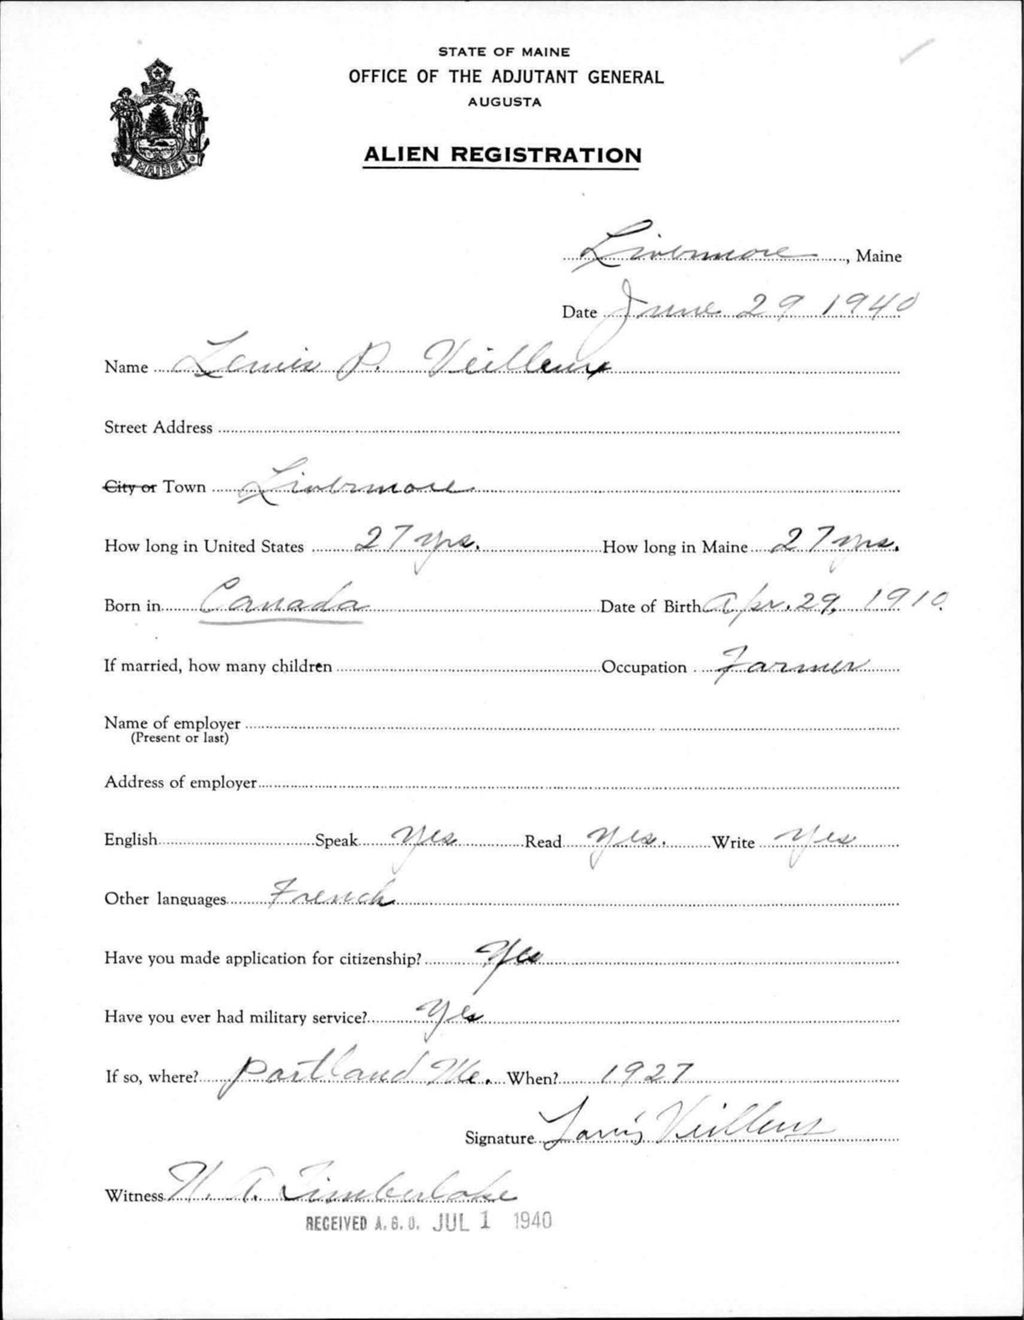 STATE OF MAINE
OFFICE OF THE ADJUTANT GENERAL
AUGUSTA
ALIEN REGISTRATION
MAINE
Livermore, Maine
Date June 29 1940
Name Lewis P. Veilleux
Street Address
City or Town Livermore
How long in United States 27 yrs. How long in Maine 27 yrs.
Born in Canada Date of Birth Apr. 29, 1910
If married, how many children Occupation Farmer
Name of employer
(Present or last)
Address of employer
English Speak Yes Read Yes. Write Yes
Other languages French
Have you made application for citizenship? Yes
Have you ever had military service? Yes
If so, where? Portland Me. When? 1927
Signature Louis Veilleux
Witness Timberlake
RECEIVED A.G.O. JUL 1 1940